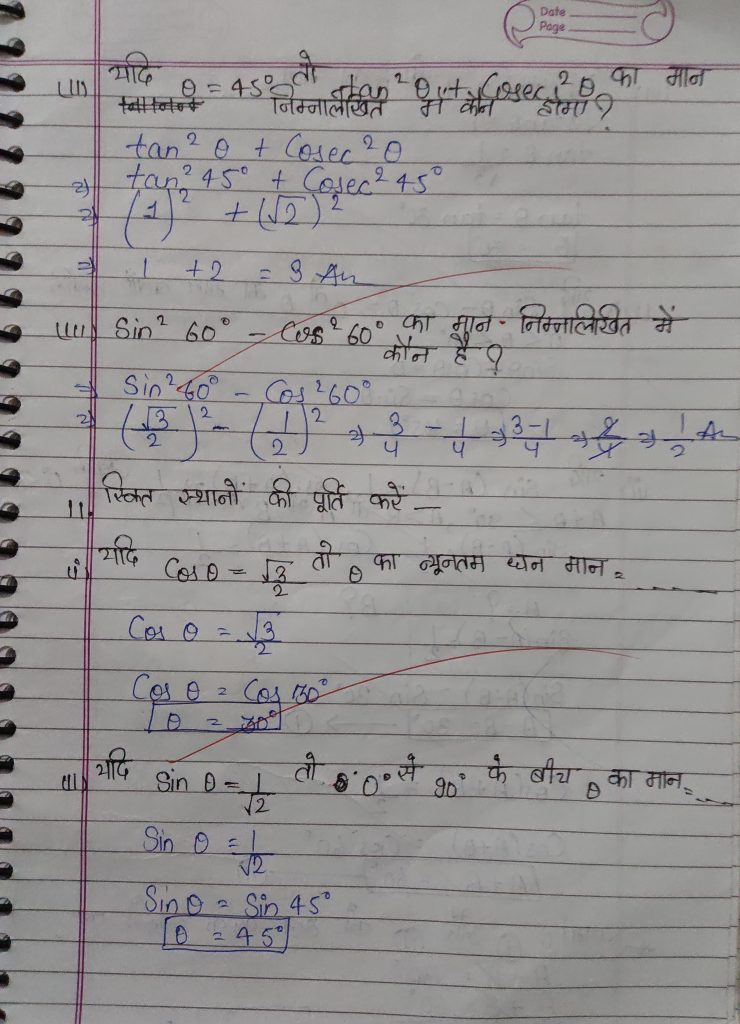 Date
Page
(III) यदि θ = 45° तो tan² θ + Cosec² θ का मान
निम्नलिखित में कौन होगा?
tan² θ + Cosec² θ
⇒ tan² 45° + Cosec² 45°
⇒ (1)² + (√2)²
⇒ 1 + 2 = 3 An
(IIII) Sin² 60° - Cos² 60° का मान निम्नलिखित में
कौन है?
⇒ Sin² 60° - Cos² 60°
⇒ (√3/2)² - (1/2)² ⇒ 3/4 - 1/4 ⇒ 3-1/4 ⇒ 2/4 ⇒ 1/2 An
11. रिक्त स्थानों की पूर्ति करें —
(i) यदि Cos θ = √3/2 तो θ का न्यूनतम धन मान = -----
Cos θ = √3/2
Cos θ = Cos 30°
θ = 30°
(II) यदि Sin θ = 1/√2 तो 0° से 90° के बीच θ का मान = ---
Sin θ = 1/√2
Sin θ = Sin 45°
θ = 45°